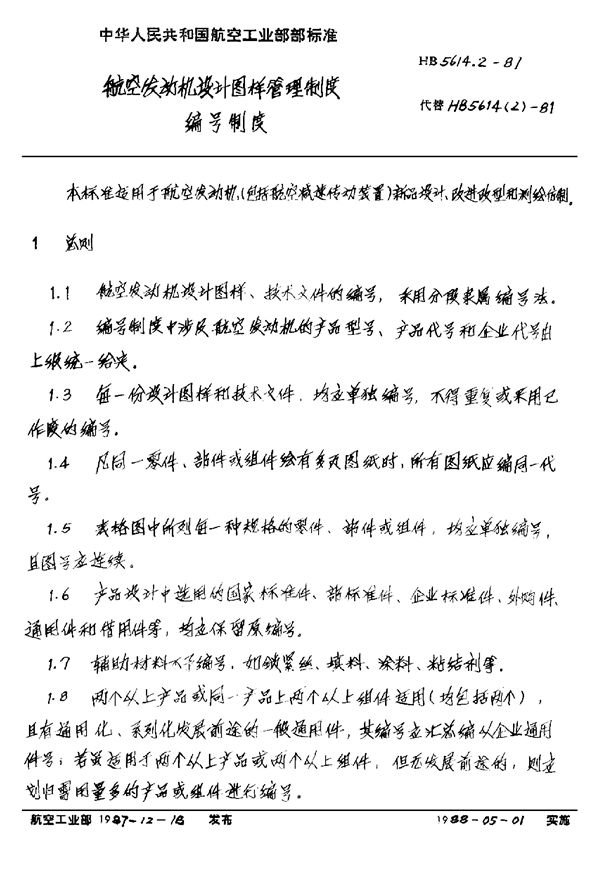 中华人民共和国航空工业部部标准
HB5614.2-81
航空发动机设计图样管理制度
编号制度
代替 HB5614(2)-81
本标准适用于航空发动机(包括航空减速传动装置)新品设计、改进改型和测绘仿制。
1 总则
1.1 航空发动机设计图样、技术文件的编号，采用分段隶属编号法。
1.2 编号制度中涉及航空发动机的产品型号、产品代号和企业代号由
上级统一给定。
1.3 每一份设计图样和技术文件，均应单独编号，不得重复或采用已
作废的编号。
1.4 凡同一零件、部件或组件绘有多页图纸时，所有图纸应编同一代
号。
1.5 表格图中所列每一种规格的零件、部件或组件，均应单独编号，
且图号应连续。
1.6 产品设计中选用的国家标准件、部标准件、企业标准件、外购件、
通用件和借用件等，均应保留原编号。
1.7 辅助材料不予编号，如锁紧丝、填料、涂料、粘结剂等。
1.8 两个以上产品或同一产品上两个以上组件适用(均包括两个)，
且有通用化、系列化发展前途的一般通用件，其编号应汇总编从企业通用
件号；若虽适用于两个以上产品或两个以上组件，但无发展前途的，则应
划归需用量多的产品或组件进行编号。
航空工业部 1987-12-18 发布
1988-05-01 实施